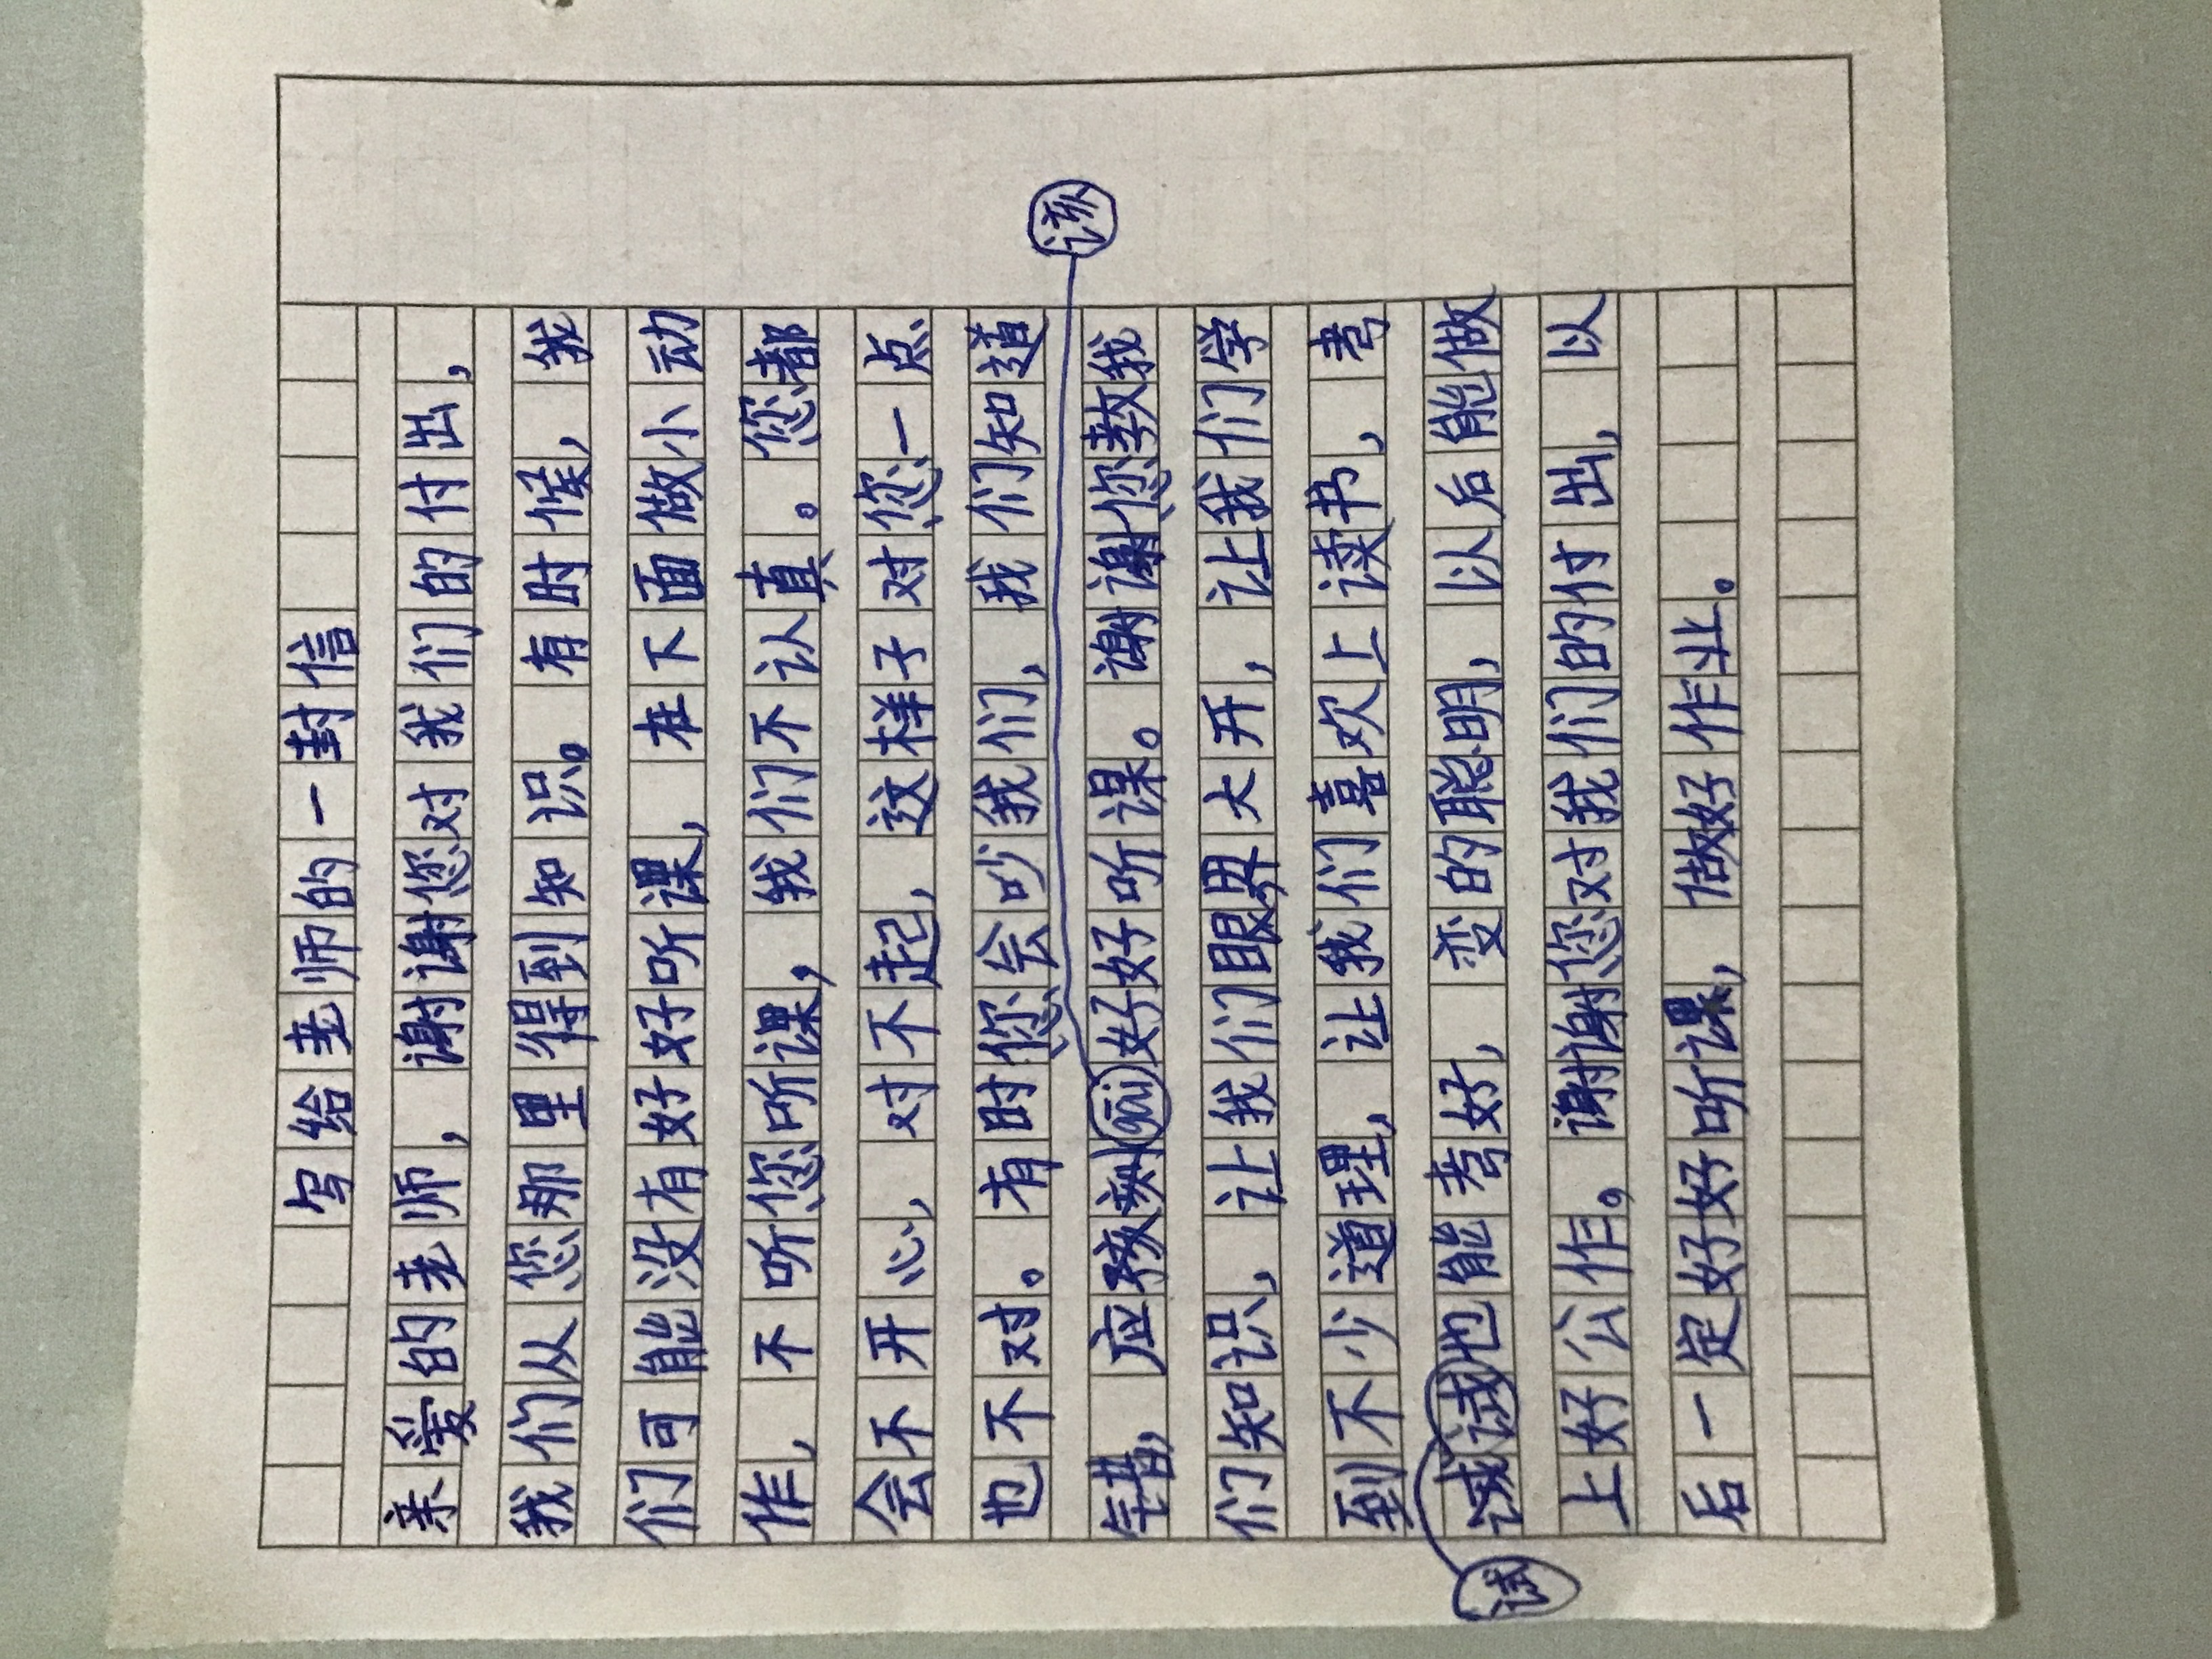 写给老师的一封信
亲爱的老师，谢谢您对我们的付出，
我们从您那里得到知识。有时候，我
们可能没有好好听课，在下面做小动
作，不听您听课，我们不认真。您都
会不开心，对不起，这样子对您一点
也不对。有时您会会吵我们，我们知道
错，应gai好好听课。谢谢您教我
该
们知识，让我们眼界大开，让我们学
到不少道理，让我们喜欢上读书，考
试也能考好，变的聪明，以后能做
试
上好公作。谢谢您对我们的付出，以
后一定好好听课，做好作业。